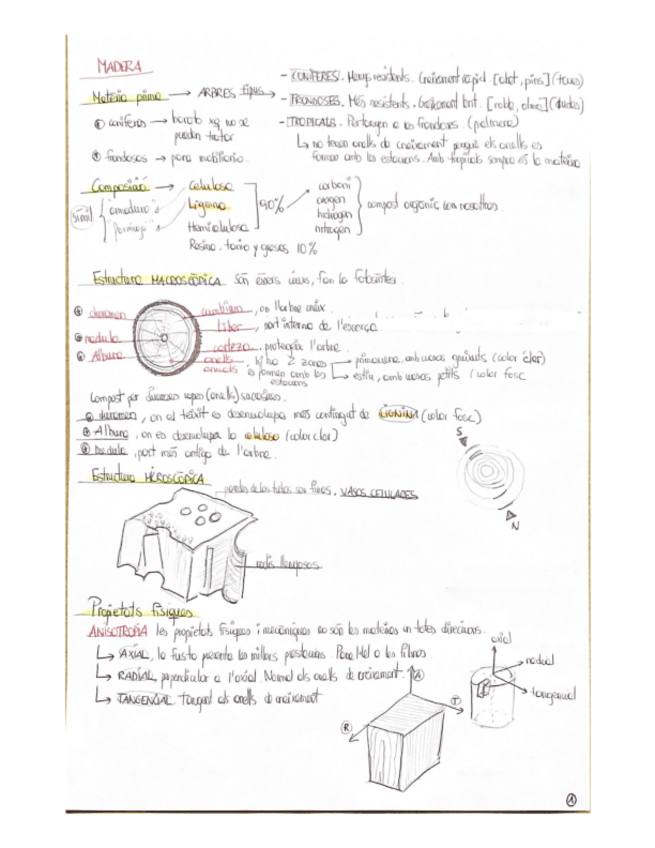 MADERA
- CONÍFERES. Menys resistents. Creixement ràpid. [abet, pins] (toves)
Matèria prima → ARBRES tipus → - FRONDOSES. Més resistents. Creixement lent. [roble, olmo] (dures)
① coníferes → barato xq no se pueden tratar
- TROPICALS. Pertanyen a les frondoses. (palmera)
② frondosas → para mobiliario.
↳ no tenen anells de creixement perquè els anells es
formen amb les estacions. Amb tropicals sempre és la mateixa
Composició → celulosa
Lignina 90%
Hemicelulosa
Resina, tanino y grasas 10%
símil "armadura"
"formigó"
carboni
oxigen
hidrogen
nitrogen
compost orgànic com nosaltres
Estructura MACROSCÒPICA. Són éssers vius, fan la fotosíntesi.
① duramen
② medula
③ Albura
cambium, on l'arbre creix.
liber, part interna de l'escorça.
corteza, protegeix l'arbre.
anells anuals hi ha 2 zones → primavera, amb vasos (color clar)
es formen amb les estacions → estiu, amb vasos petits (color fosc
Compost per diverses capes (anells) successives.
① duramen, on el teixit es desenvolupa més contingut de LIGNINA (color fosc)
③ Albura, on es desenvolupa la celulosa (color clar)
② medula, part més antiga de l'arbre.
S
N
Estructura MICROSCÒPICA
parets de les tubs són fines. VASOS CELULARES
radis llenyosos
Propietats físiques
ANISOTROPIA les propietats físiques i mecàniques no són les mateixes en totes direccions.
↳ AXIAL, la fusta presenta les millors prestacions. Paral·lel a les fibres
↳ RADIAL, perpendicular a l'axial. Normal als anells de creixement.
↳ TANGENCIAL. Tangent als anells de creixement
A
T
R
axial
radial
tangencial
①